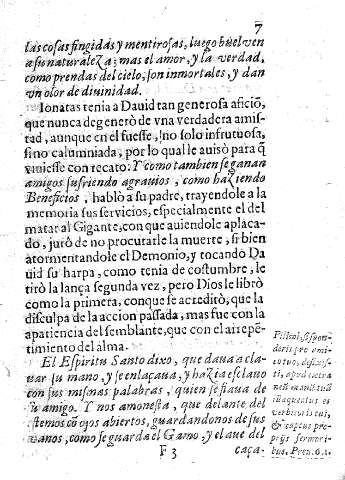 7
las cosas fingidas y mentirosas, luego buelven
a su naturaleza; mas el amor, y la verdad,
como prendas del cielo, son inmortales, y dan
vn olor de diuinidad.
Ionatas tenia a Dauid tan generosa afició,
que nunca degeneró de vna verdadera amis-
tad, aunque en el fuesse, no solo infrutuosa,
sino calumniada, por lo qual le auisò para q̃
viuiesse con recato: Y como tambien se ganan
amigos sufriendo agrauios, como haziendo
Beneficios, hablò a su padre, trayendole a la
memoria sus servicios, especialmente el del
matar al Gigante, con que auiendole aplaca-
do, jurò de no procurarle la muerte, si bien
atormentandole el Demonio, y tocando Da
uid su harpa, como tenia de costumbre, le
tirò la lança segunda vez, pero Dios le librò
como la primera, conque se acreditò, que la
disculpa de la accion passada, mas fue con la
apatiencia del semblante, que con el arrepē-
timiento del alma.
El Espiritu Santo dixo, que daua a cla-
uar su mano, y se enlaçaua, y hazia esclauo
con sus mismas palabras, quien se fiaua de
su amigo. Y nos amonesta, que delante del
estemos cõ ojos abiertos, guardandonos de sus
manos, como se guarda el Gamo, y el aue del
F 3 caça-
Fili mi, si spon-
deris pro ami-
co tuo, defixis-
ti, apud extra
neũ manũ tuã
illaqueatus es
verbis oris tui,
& captus pro-
prijs sermoni-
bus. Prou. 6. 1.